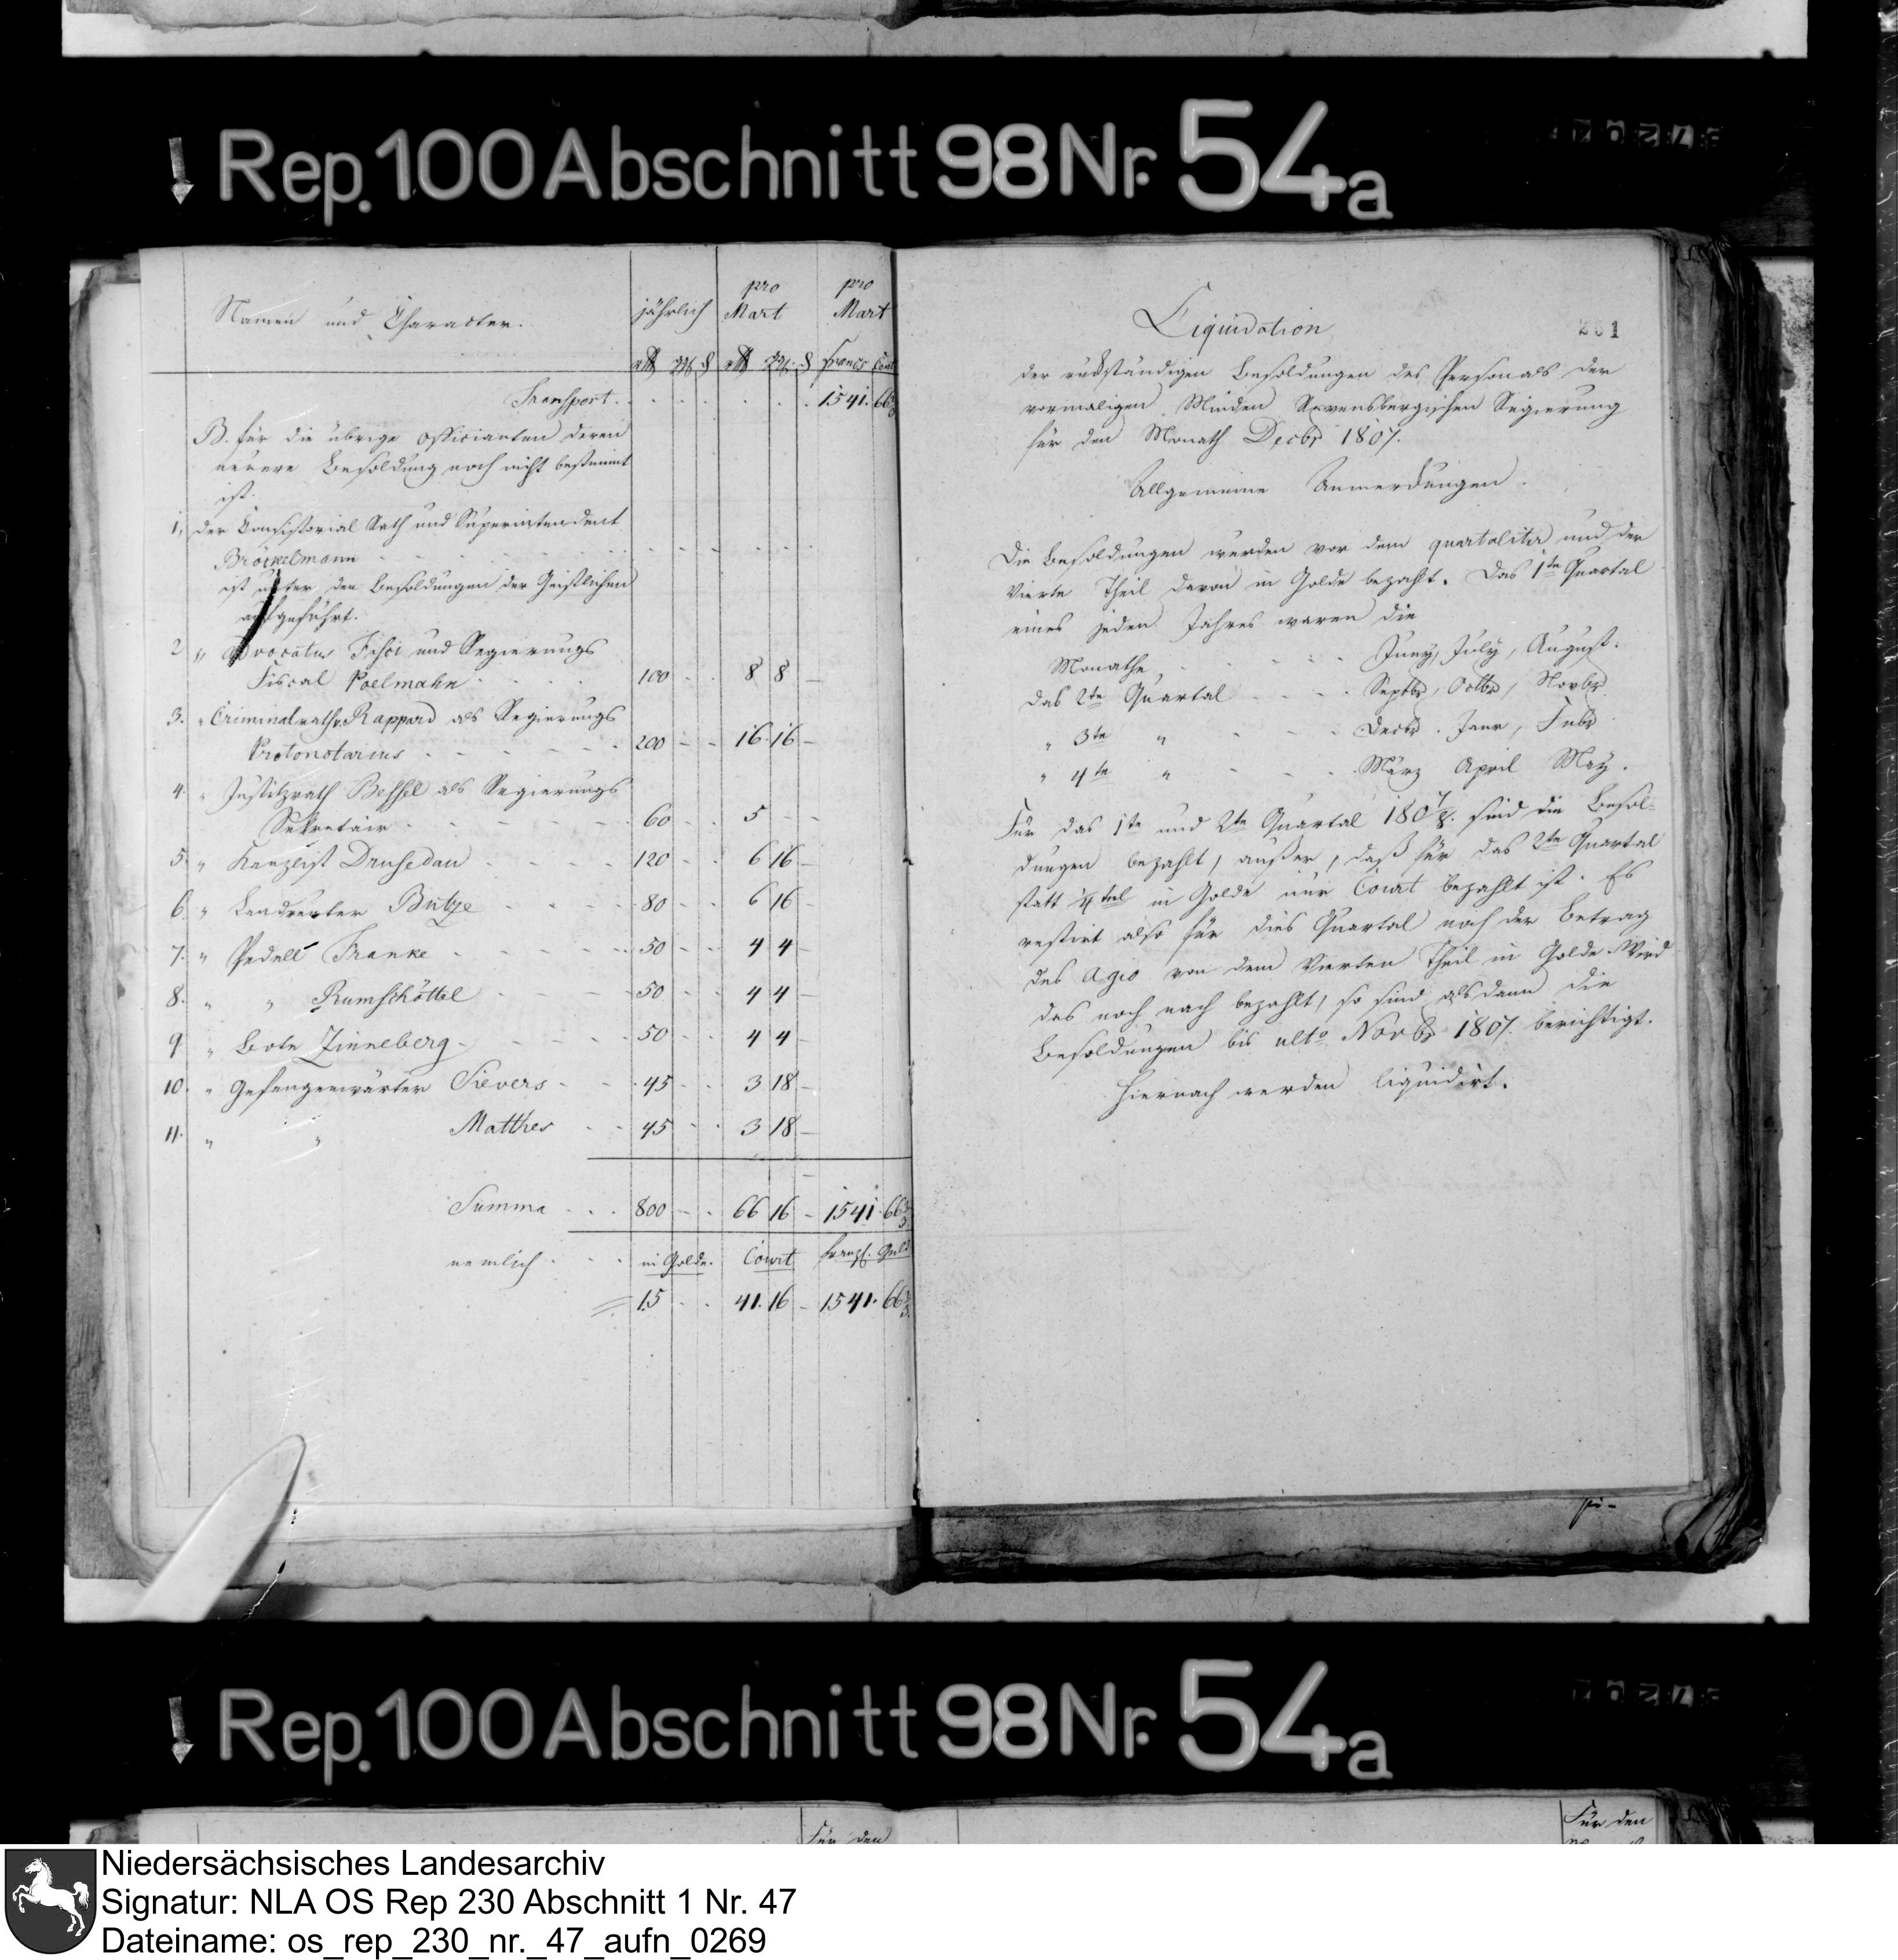 Rep. 100 Abschnitt 98 Nr. 54a
Namen und Character.
jährlich
pro Mart
pro Mart
rtl ggr ₰ rtl ggr ₰ Francs Cent
Transport . . . . . . . 1541. 66
B. für die übrige Officianten deren
neuere Besoldung noch nicht bestimmt
ist.
1, der Consistorial Rath und Superintendent
Bröckelmann
ist unter den Besoldungen der Geistlichen
aufgeführt.
2 " Advocatus Fisci und Regierungs
Fiscal Poelmahn 100 - - 8 8 -
3. " Criminalrath Rappard als Regierungs
Protonotarius 200 - - 16 16 -
4. " Justitzrath Bessel als Regierungs
Sekretair 60 - - 5 - -
5. " Kanzelist Drusedau 120 - - 6 16 -
6. " Landreuter Bütze 80 - - 6 16 -
7. " Pedell Franke 50 - - 4 4 -
8. " " Rumschöttel 50 - - 4 4 -
9 " Bote Zinneberg 50 - - 4 4 -
10. " Gefangenwärter Sievers 45 - - 3 18 -
11. " " Matthes 45 - - 3 18 -
Summa . . . 800 - - 66 16 - 1541. 66 2/3
nemlich . . . in Golde. Court französ. Geld
15 - - 41. 16 - 1541. 66 2/3
Liquidation
201
der rückständigen Besoldungen des Personals der
vormaligen Minden Ravensbergischen Regierung
für den Monath Decbr 1807.
Allgemeine Anmerckungen.
Die Besoldungen wurden vor dem quartaliter und der
Vierte Theil davon in Golde bezahlt. Das 1te Quartal
eines jeden Jahres waren die
Monathe . . . . Juny, July, August.
das 2te Quartal . . . . Septbr, Octbr, Novbr
" 3te " - - - Decbr. Janr, Febr
" 4te " - - - März April May.
Für das 1te und 2te Quartal 1807/8. sind die Besol-
dungen bezahlt, außer, daß für das 2te Quartal
statt 1/4tel in Golde nur Court bezahlt ist. Es
restirt also für dies Quartal noch der Betrag
des Agio von dem Vierten Theil in Golde. Wird
das noch nach bezahlt, so sind alsdann die
Besoldungen bis ulto Novbr 1807. berichtigt.
Hiernach werden liquidirt.
Rep. 100 Abschnitt 98 Nr. 54a
Für den
Für den
Niedersächsisches Landesarchiv
Signatur: NLA OS Rep 230 Abschnitt 1 Nr. 47
Dateiname: os_rep_230_nr._47_aufn_0269